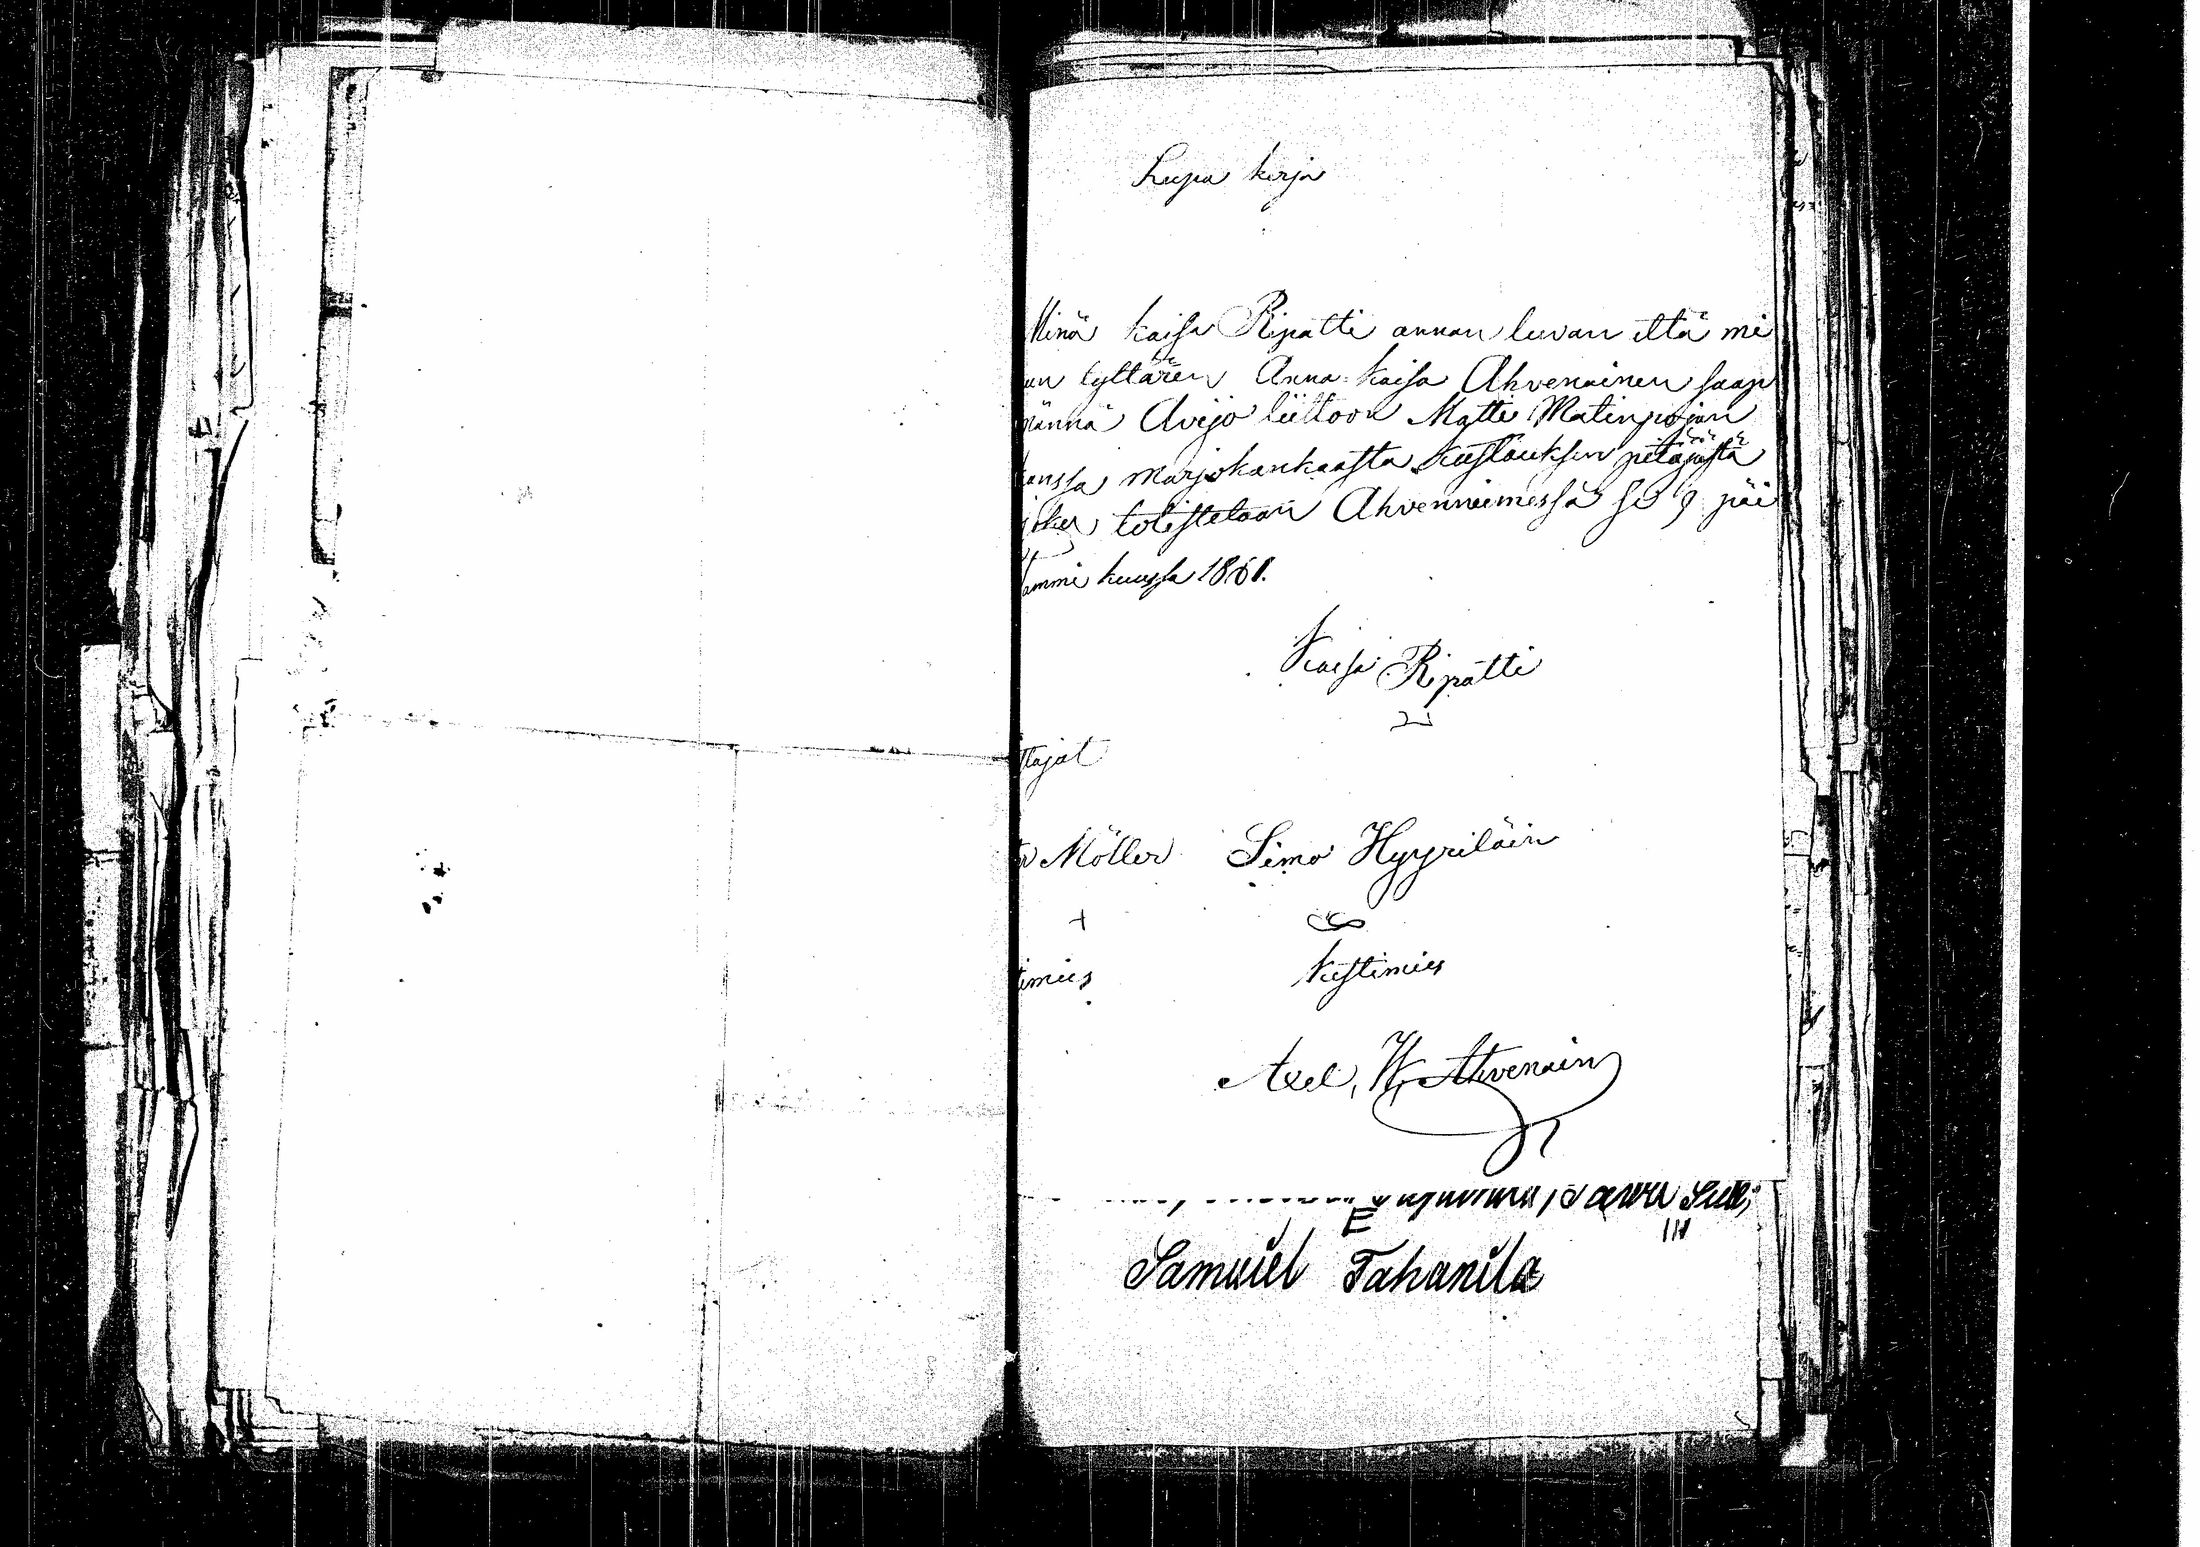 Lupa kirja
Minä kaisa Ripatti annan luvan että mi
an tyttären Anna kaisa Ahvenainen saap
männä Avijo liittoon Matti Matinpojan
kanssa marjokankaasta Kustauksen pitäjästä
joka totistetaan Ahvenniemessä se 9 päi
Tammi kuussa 1861.
Kaisa Ripatti
ttajat
Möller Simo Hyyriläin
+
timies Kestimies
Axel, W, Ahvenain
Samuiel Tahanila